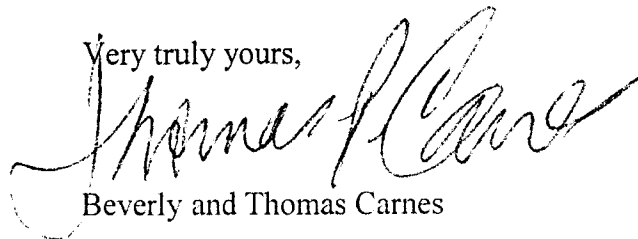 Very truly yours,
Thomas P Carnes
Beverly and Thomas Carnes